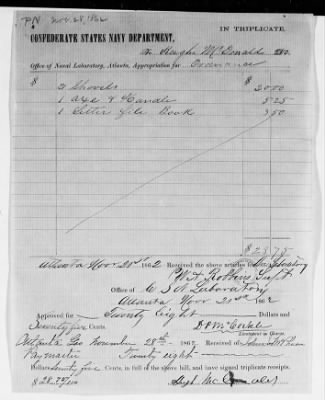 PN Nov. 28, 1862
IN TRIPLICATE.
CONFEDERATE STATES NAVY DEPARTMENT,
To Hugh McDonald Dr.
Office of Naval Laboratory, Atlanta, Appropriation for Ordnance
$ $
2 Shovels 20 00
1 axe & Handle 5 25
1 Letter file Book 3 50
$ 28.75
Atlanta Nov 20th 1862 Received the above articles for Laboratory
W A Robbins Supt.
Office of C S N Laboratory
Atlanta Nov 20th 1862
Approved for Twenty Eight Dollars and
Seventy five Cents. D P McCorkle
Lieutenant in Charge.
Atlanta Geo November 28th 1862 Received of
Paymaster Twenty eight Dollars
Seventy five Cents, in full of the above bill, and have signed triplicate receipts.
$ 28.75/100 Hugh McDonald